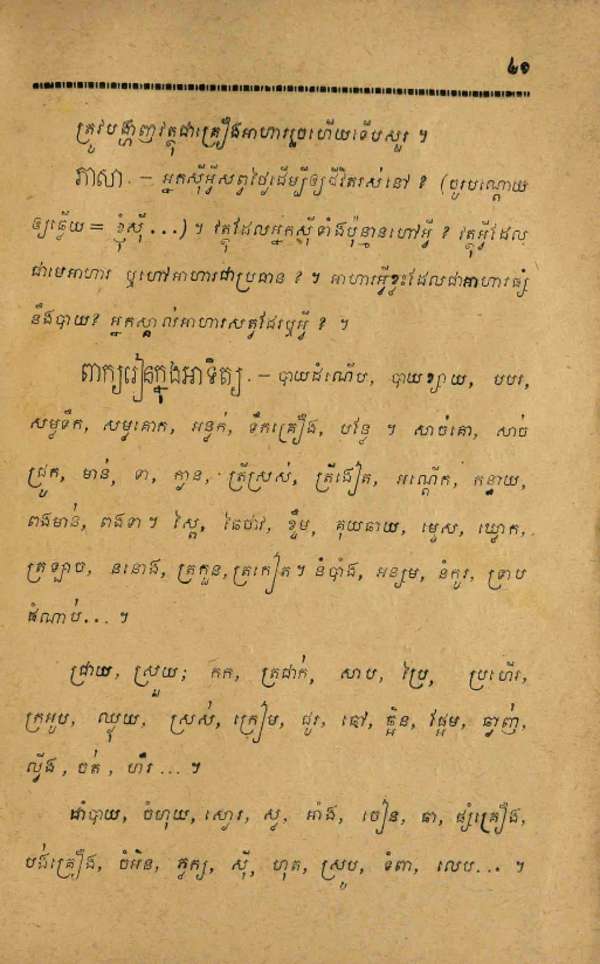 ៤១
ត្រូវបង្ហាញវត្ថុជាគ្រឿងអាហាររួចហើយទើបសួរ ។
ភាសា. — អ្នកស៊ីអ្វីសព្វថ្ងៃដើម្បីឲ្យជីវិតរស់នៅ ? (ជួរបណ្ដោយ
ឲ្យឆ្លើយ = ខ្ញុំស៊ី ...) ។ វត្ថុដែលអ្នកស៊ីទាំងប៉ុន្មានហៅអ្វី ? វត្ថុអ្វីដែល
ជាមេអាហារ ឬហៅអាហារជាប្រធាន ? ។ អាហារអ្វីខ្លះដែលជាអាហារផ្សំ
នឹងបាយ? អ្នកស្គាល់អាហារសត្វដែរឬអ្វី ? ។
ពាក្យរៀនក្នុងអាទិត្យ. — បាយដំណើប, បាយខ្យាយ, បបរ,
សម្លទឹក, សម្លគោក, អន្លក់, ទឹកគ្រឿង, បន្លែ ។ សាច់គោ, សាច់
ជ្រូក, មាន់, ទា, ក្លាន, ត្រីស្រស់, ត្រីងៀត, អណ្ដើក, កន្ធាយ,
ពងមាន់, ពងទា ។ ស្ពៃ, ឆៃថាវ, ខ្ទឹម, គុយឆាយ, ម្ទេស, ឃ្លោក,
ត្រឡាច, ននោង, ត្រកួន, ត្រកៀត ។ នំបាំង, អន្សម, នំគូរ, ទ្រាប
ដំណាប់... ។
ជ្រាយ, ស្រួយ; កក, ត្រជាក់, សាប, ប្រៃ, ប្រហើរ,
ក្រអូប, ឈ្ងុយ, ស្រស់, ក្រៀម, ជូរ, ផៅ, ឆ្អិន, ផ្អែម, ធ្លាញ់,
ល្វីង, ចត់, ហឹរ ... ។
ដាំបាយ, ចំហុយ, ស្ងោរ, ស្ល, អាំង, ចៀន, ឆា, ផ្សំគ្រឿង,
បង់គ្រឿង, ចំអិន, ភ្លក្ស, ស៊ី, ហុត, ស្រូប, ទំពា, លេប... ។